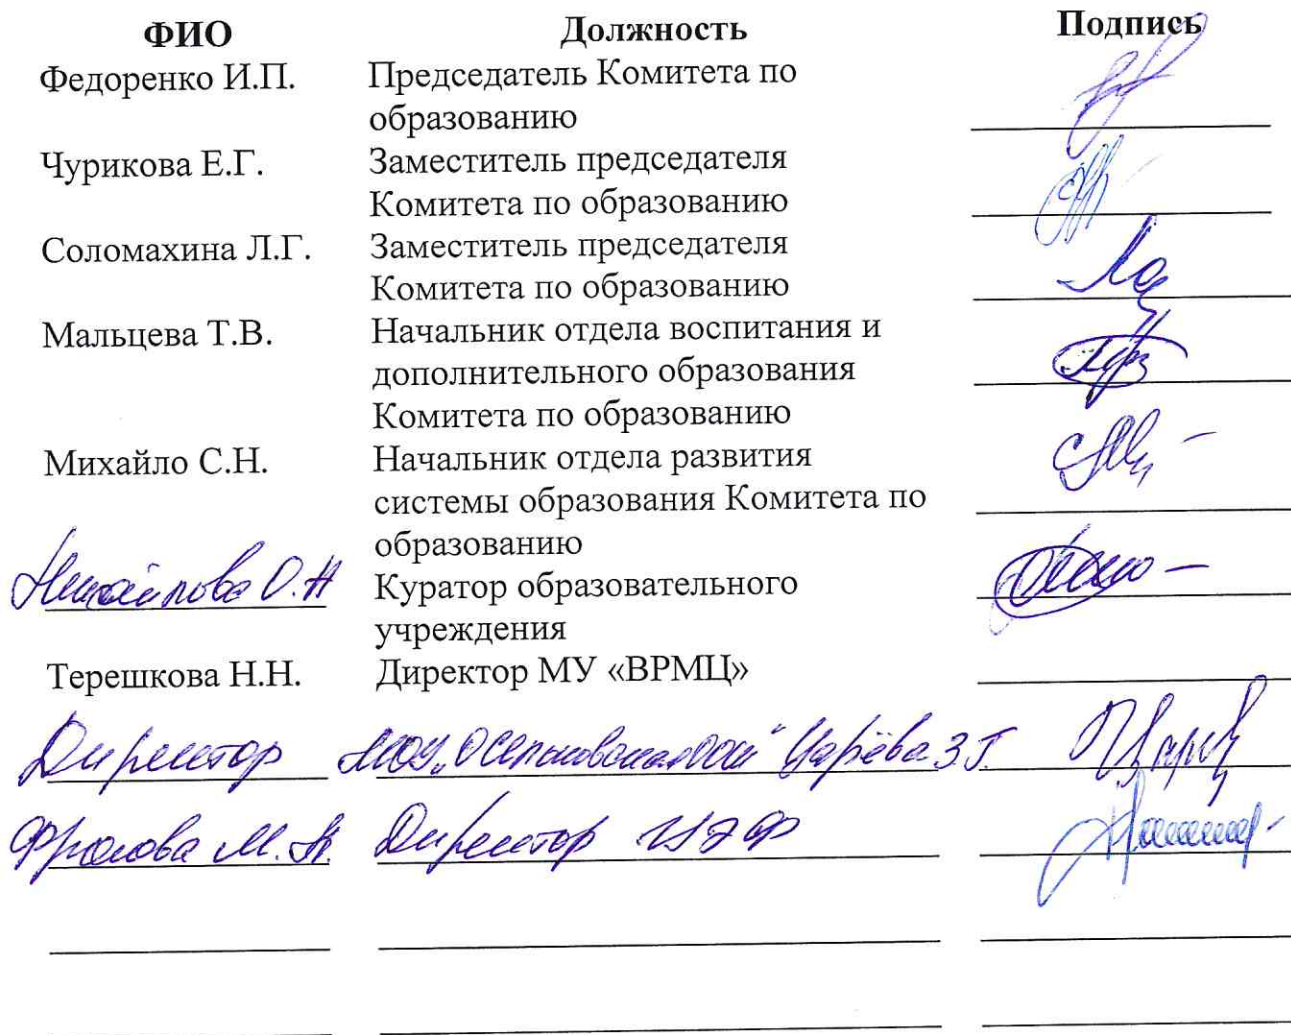 ФИО Должность Подпись
Федоренко И.П. Председатель Комитета по
образованию
Чурикова Е.Г. Заместитель председателя
Комитета по образованию
Соломахина Л.Г. Заместитель председателя
Комитета по образованию
Мальцева Т.В. Начальник отдела воспитания и
дополнительного образования
Комитета по образованию
Михайло С.Н. Начальник отдела развития
системы образования Комитета по
образованию
О.Н Куратор образовательного
учреждения
Терешкова Н.Н. Директор МУ «ВРМЦ»
Директор МОУ Царёва З.Г.
Фролова М. Директор ЦЭФ